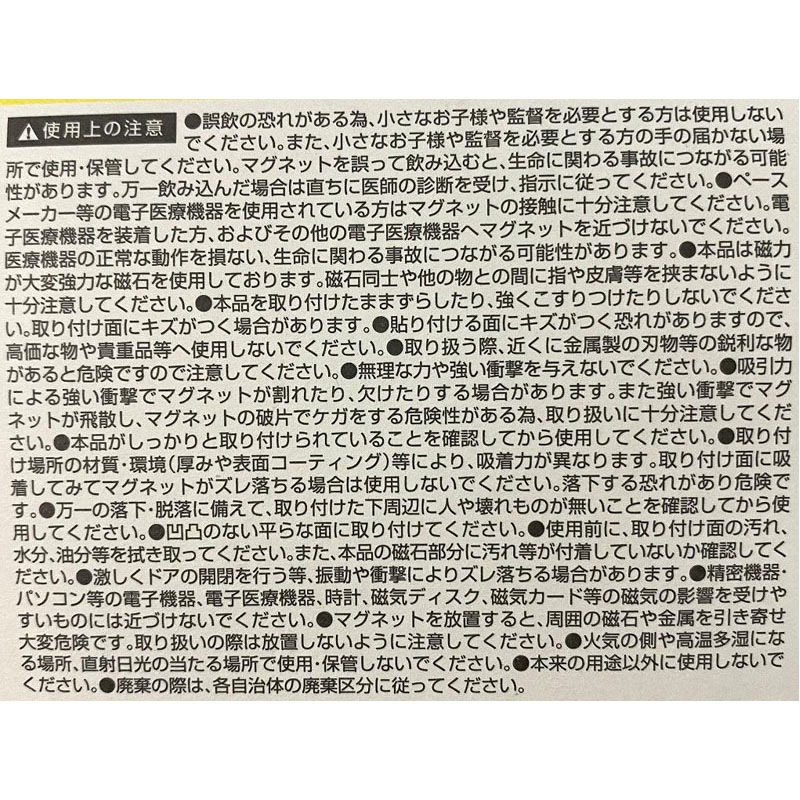 ⚠使用上の注意 ●誤飲の恐れがある為、小さなお子様や監督を必要とする方は使用しない
でください。また、小さなお子様や監督を必要とする方の手の届かない場
所で使用・保管してください。マグネットを誤って飲み込むと、生命に関わる事故につながる可能
性があります。万一飲み込んだ場合は直ちに医師の診断を受け、指示に従ってください。●ペース
メーカー等の電子医療機器を使用されている方はマグネットの接触に十分注意してください。電
子医療機器を装着した方、およびその他の電子医療機器へマグネットを近づけないでください。
医療機器の正常な動作を損ない、生命に関わる事故につながる可能性があります。●本品は磁力
が大変強力な磁石を使用しております。磁石同士や他の物との間に指や皮膚等を挟まないように
十分注意してください。●本品を取り付けたままずらしたり、強くこすりつけたりしないでくださ
い。取り付け面にキズがつく場合があります。●貼り付ける面にキズがつく恐れがありますので、
高価な物や貴重品等へ使用しないでください。●取り扱う際、近くに金属製の刃物等の鋭利な物
があると危険ですので注意してください。●無理な力や強い衝撃を与えないでください。●吸引力
による強い衝撃でマグネットが割れたり、欠けたりする場合があります。また強い衝撃でマグ
ネットが飛散し、マグネットの破片でケガをする危険性がある為、取り扱いに十分注意してくださ
い。●本品がしっかりと取り付けられていることを確認してから使用してください。●取り付
け場所の材質・環境(厚みや表面コーティング)等により、吸着力が異なります。取り付け面に吸
着してみてマグネットがズレ落ちる場合は使用しないでください。落下する恐れがあり危険で
す。●万一の落下・脱落に備えて、取り付けた下周辺に人や壊れものが無いことを確認してから使
用してください。●凹凸のない平らな面に取り付けてください。●使用前に、取り付け面の汚れ、
水分、油分等を拭き取ってください。また、本品の磁石部分に汚れ等が付着していないか確認してく
ださい。●激しくドアの開閉を行う等、振動や衝撃によりズレ落ちる場合があります。●精密機器・
パソコン等の電子機器、電子医療機器、時計、磁気ディスク、磁気カード等の磁気の影響を受けや
すいものには近づけないでください。●マグネットを放置すると、周囲の磁石や金属を引き寄せ
大変危険です。取り扱いの際は放置しないように注意してください。●火気の側や高温多湿にな
る場所、直射日光の当たる場所で使用・保管しないでください。●本来の用途以外に使用しないで
ください。●廃棄の際は、各自治体の廃棄区分に従ってください。